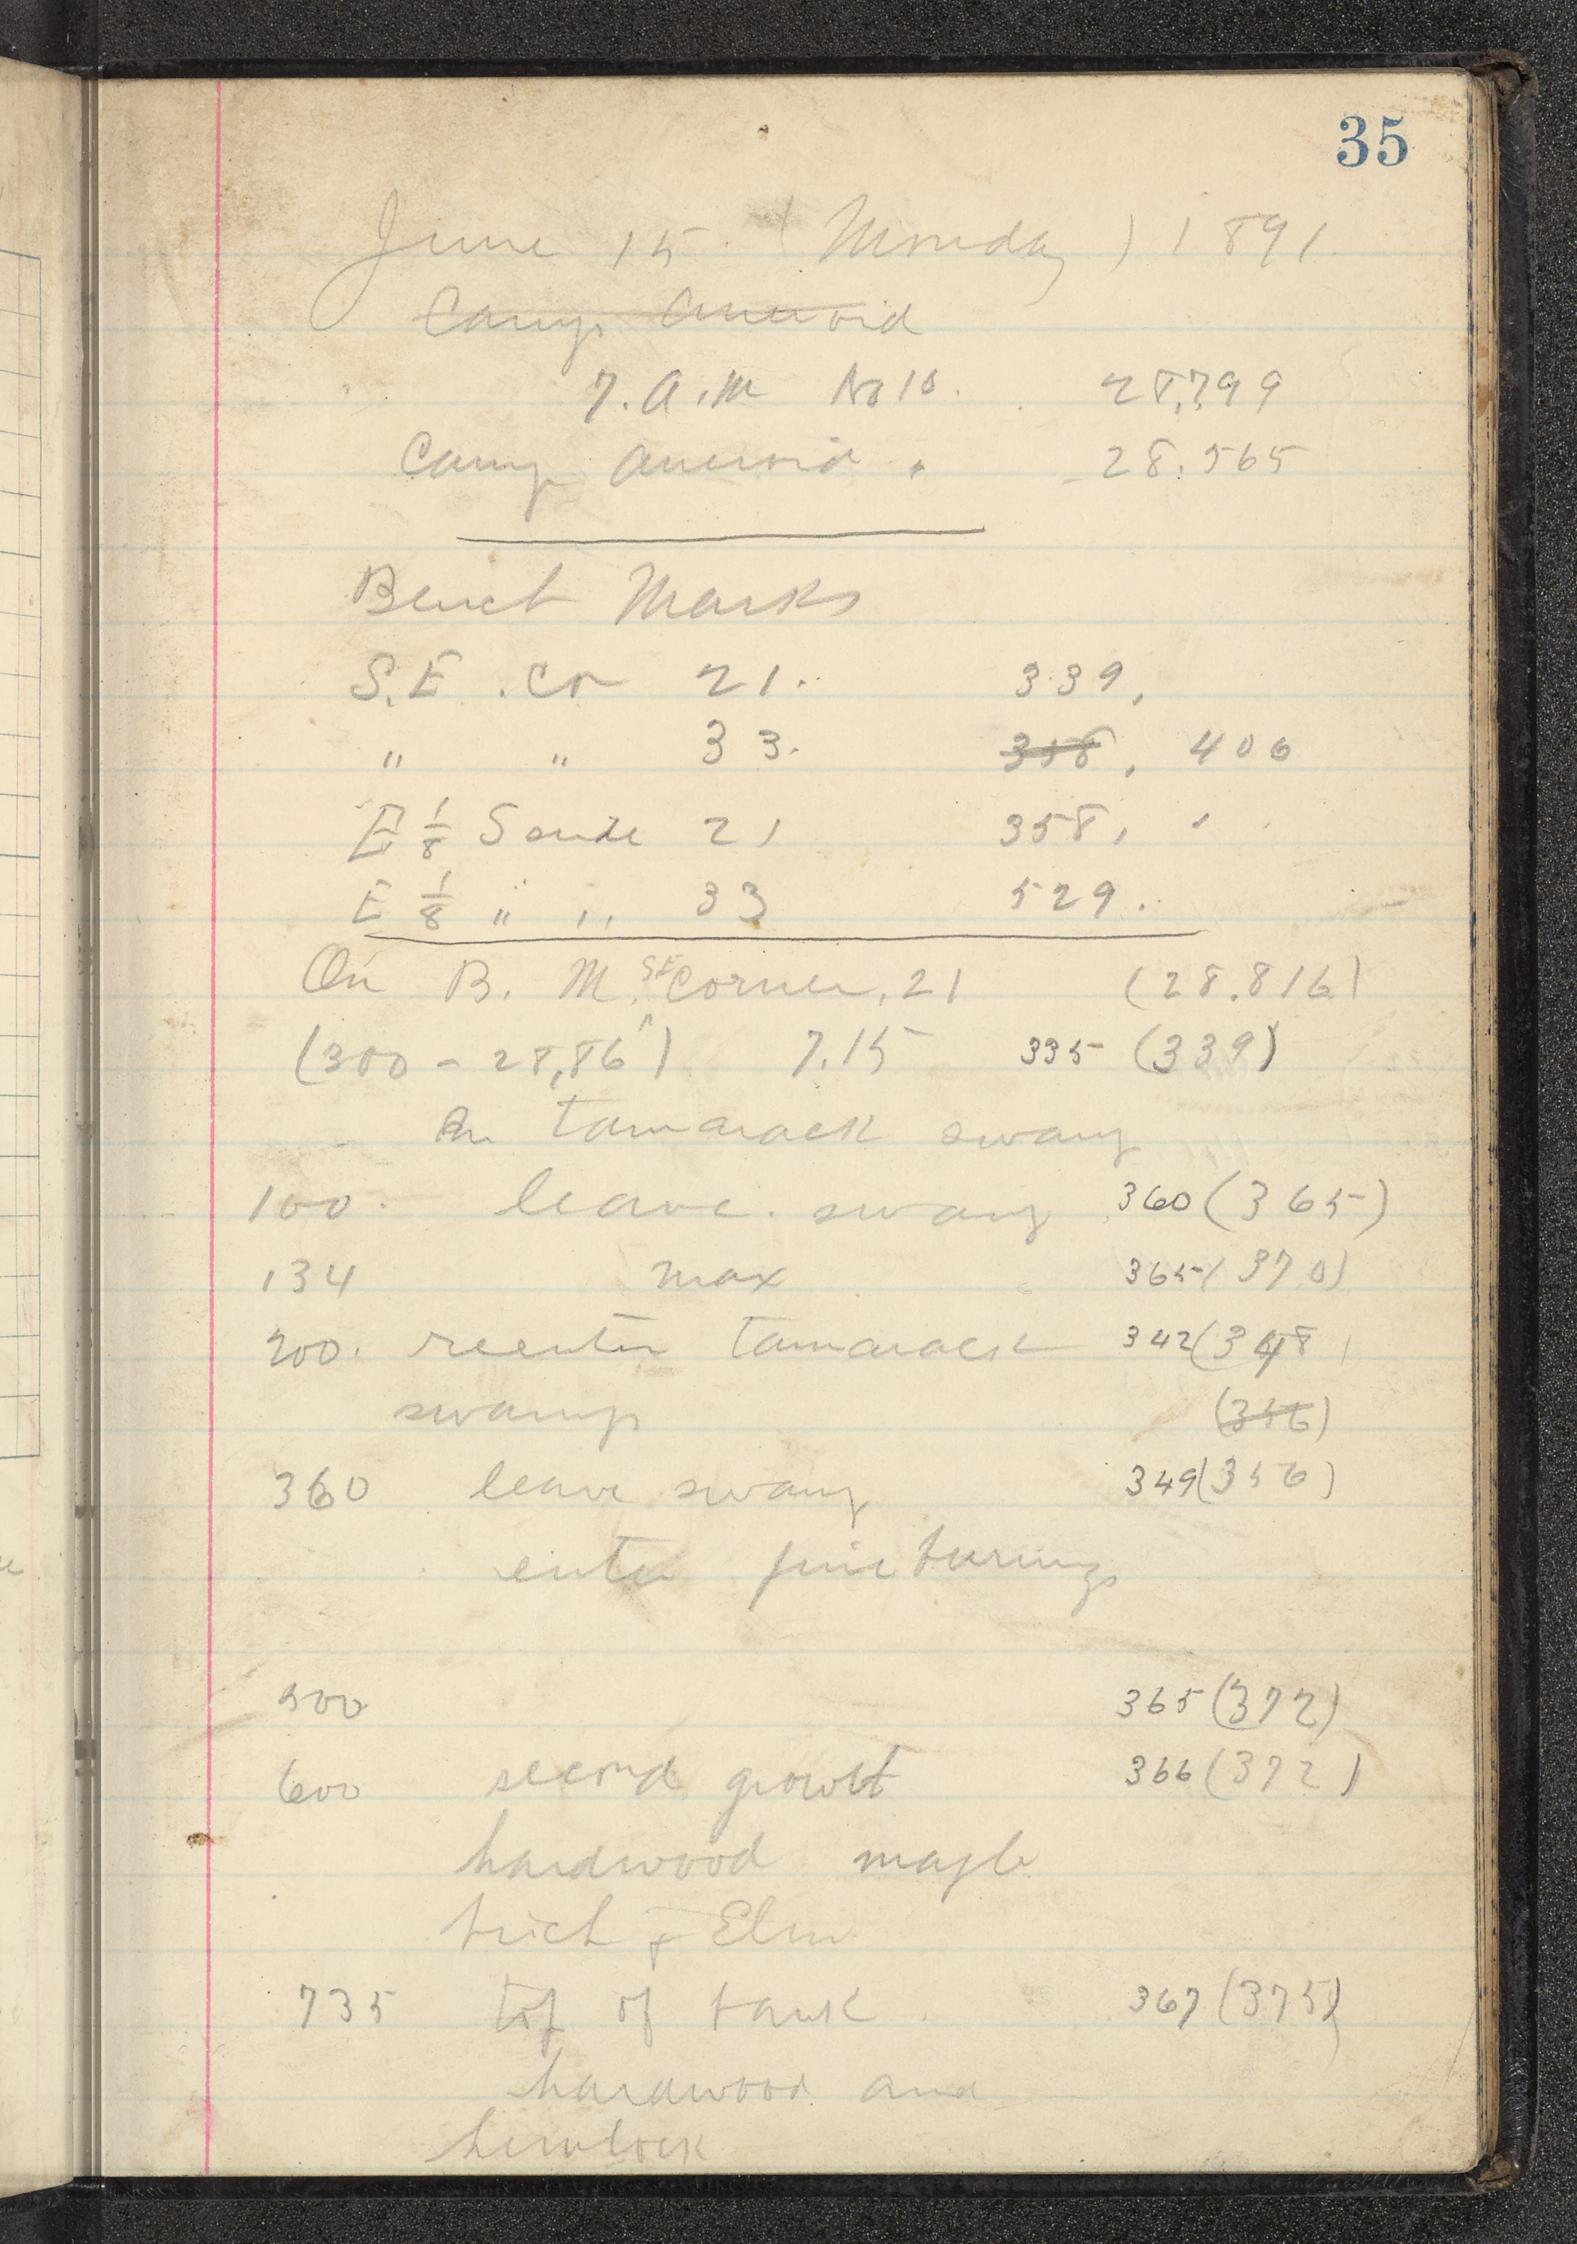 35
June 15 (Monday) 1891
Camp Aneroid
7. A.M No 10. 28,799
Camp Aneroid. 28.565
Bench Marks
S.E. Cr 21. 339.
" " 33. 358, 406
E 1/8 S side 21 358.
E 1/8 " " 33 529.
On B. M. SE Corner, 21 (28.816)
(300 - 28,86) 7.15 335 (339)
In tamarack swamp
100. leave swamp 360 (365)
134 max 365 (370)
200. reenter tamarack 342 (348)
swamp (356)
360 leave swamp 349 (356)
enter pine burnings
500 365 (372)
600 second growth 366 (372)
hardwood maple
birch & Elm
735 top of bank 367 (375)
hardwood and
hemlock